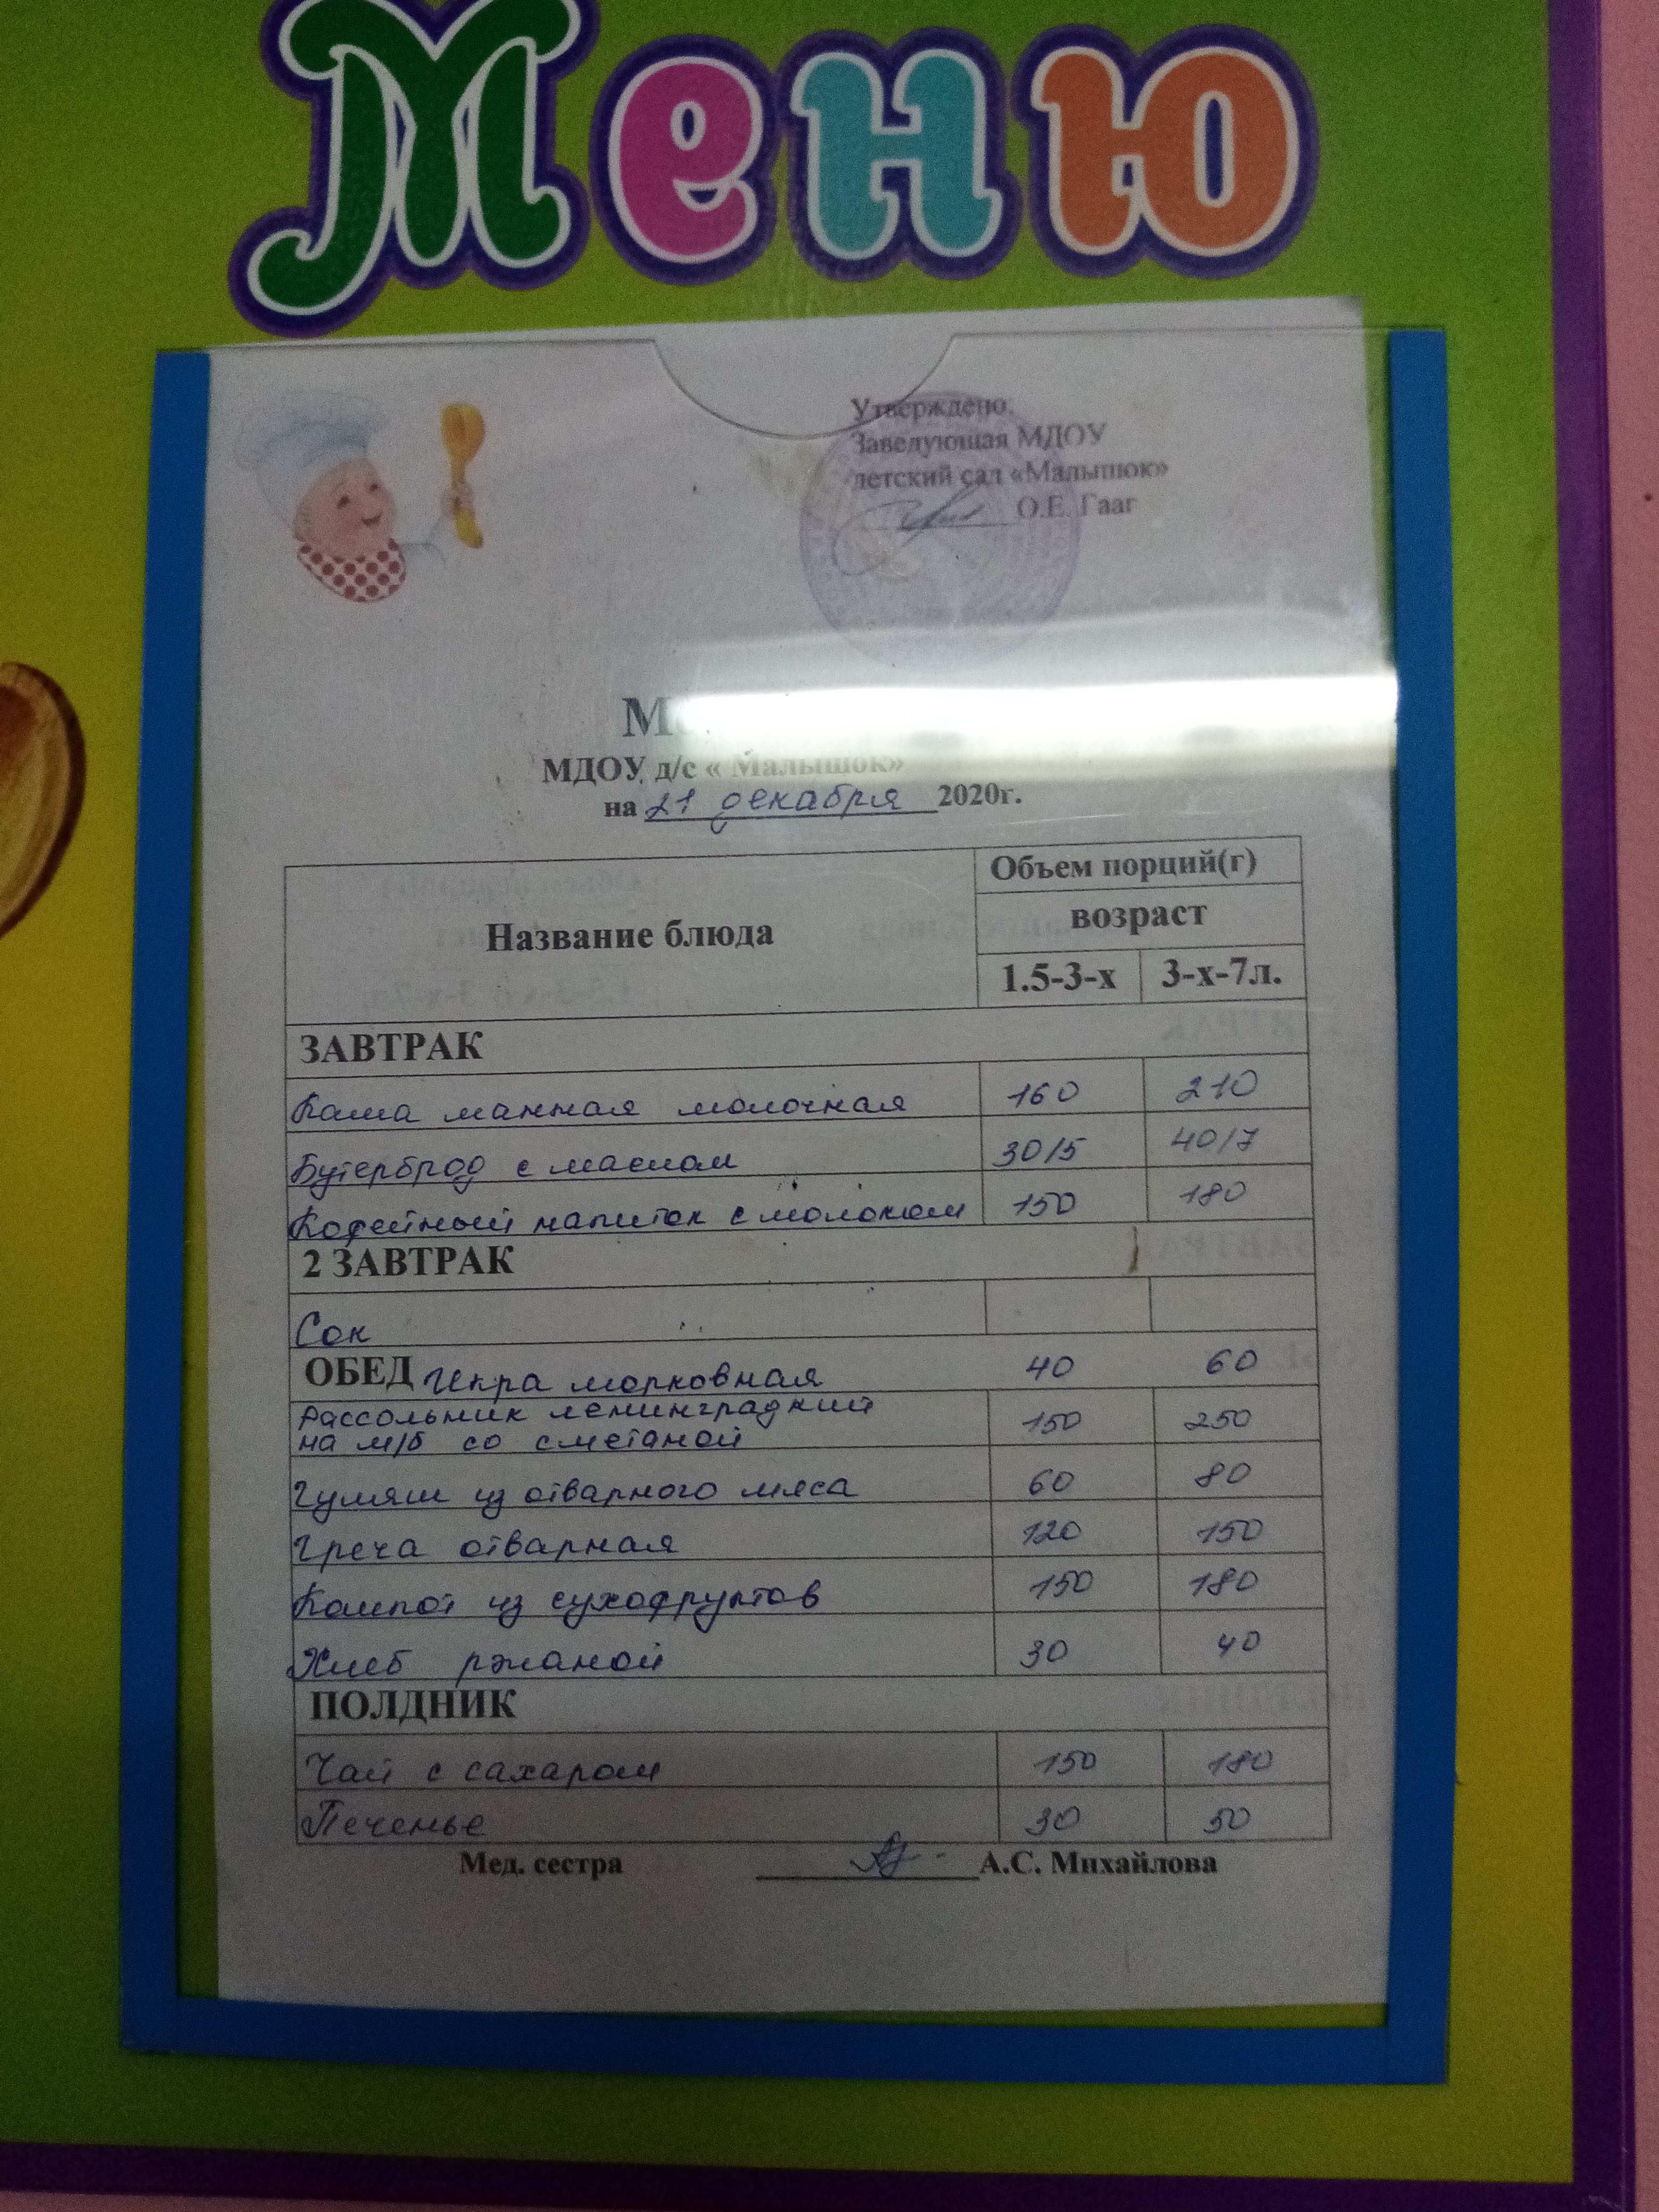 Меню
Утверждено:
Заведующая МДОУ
детский сад «Малышок»
О.Е. Гааг
МДОУ д/с « Малышок»
на 21 декабря 2020г.
Название блюда
Объем порций(г)
возраст
1.5-3-х 3-х-7л.
ЗАВТРАК
Каша манная молочная 160 210
Бутерброд с маслом 30/5 40/7
Кофейный напиток с молоком 150 180
2 ЗАВТРАК
Сок
ОБЕД Икра морковная 40 60
Рассольник ленинградский 150 250
на м/б со сметаной
Гуляш из отварного мяса 60 80
Греча отварная 120 150
Компот из сухофруктов 150 180
Хлеб ржаной 30 40
ПОЛДНИК
Чай с сахаром 150 180
Печенье 30 50
Мед. сестра А.С. Михайлова